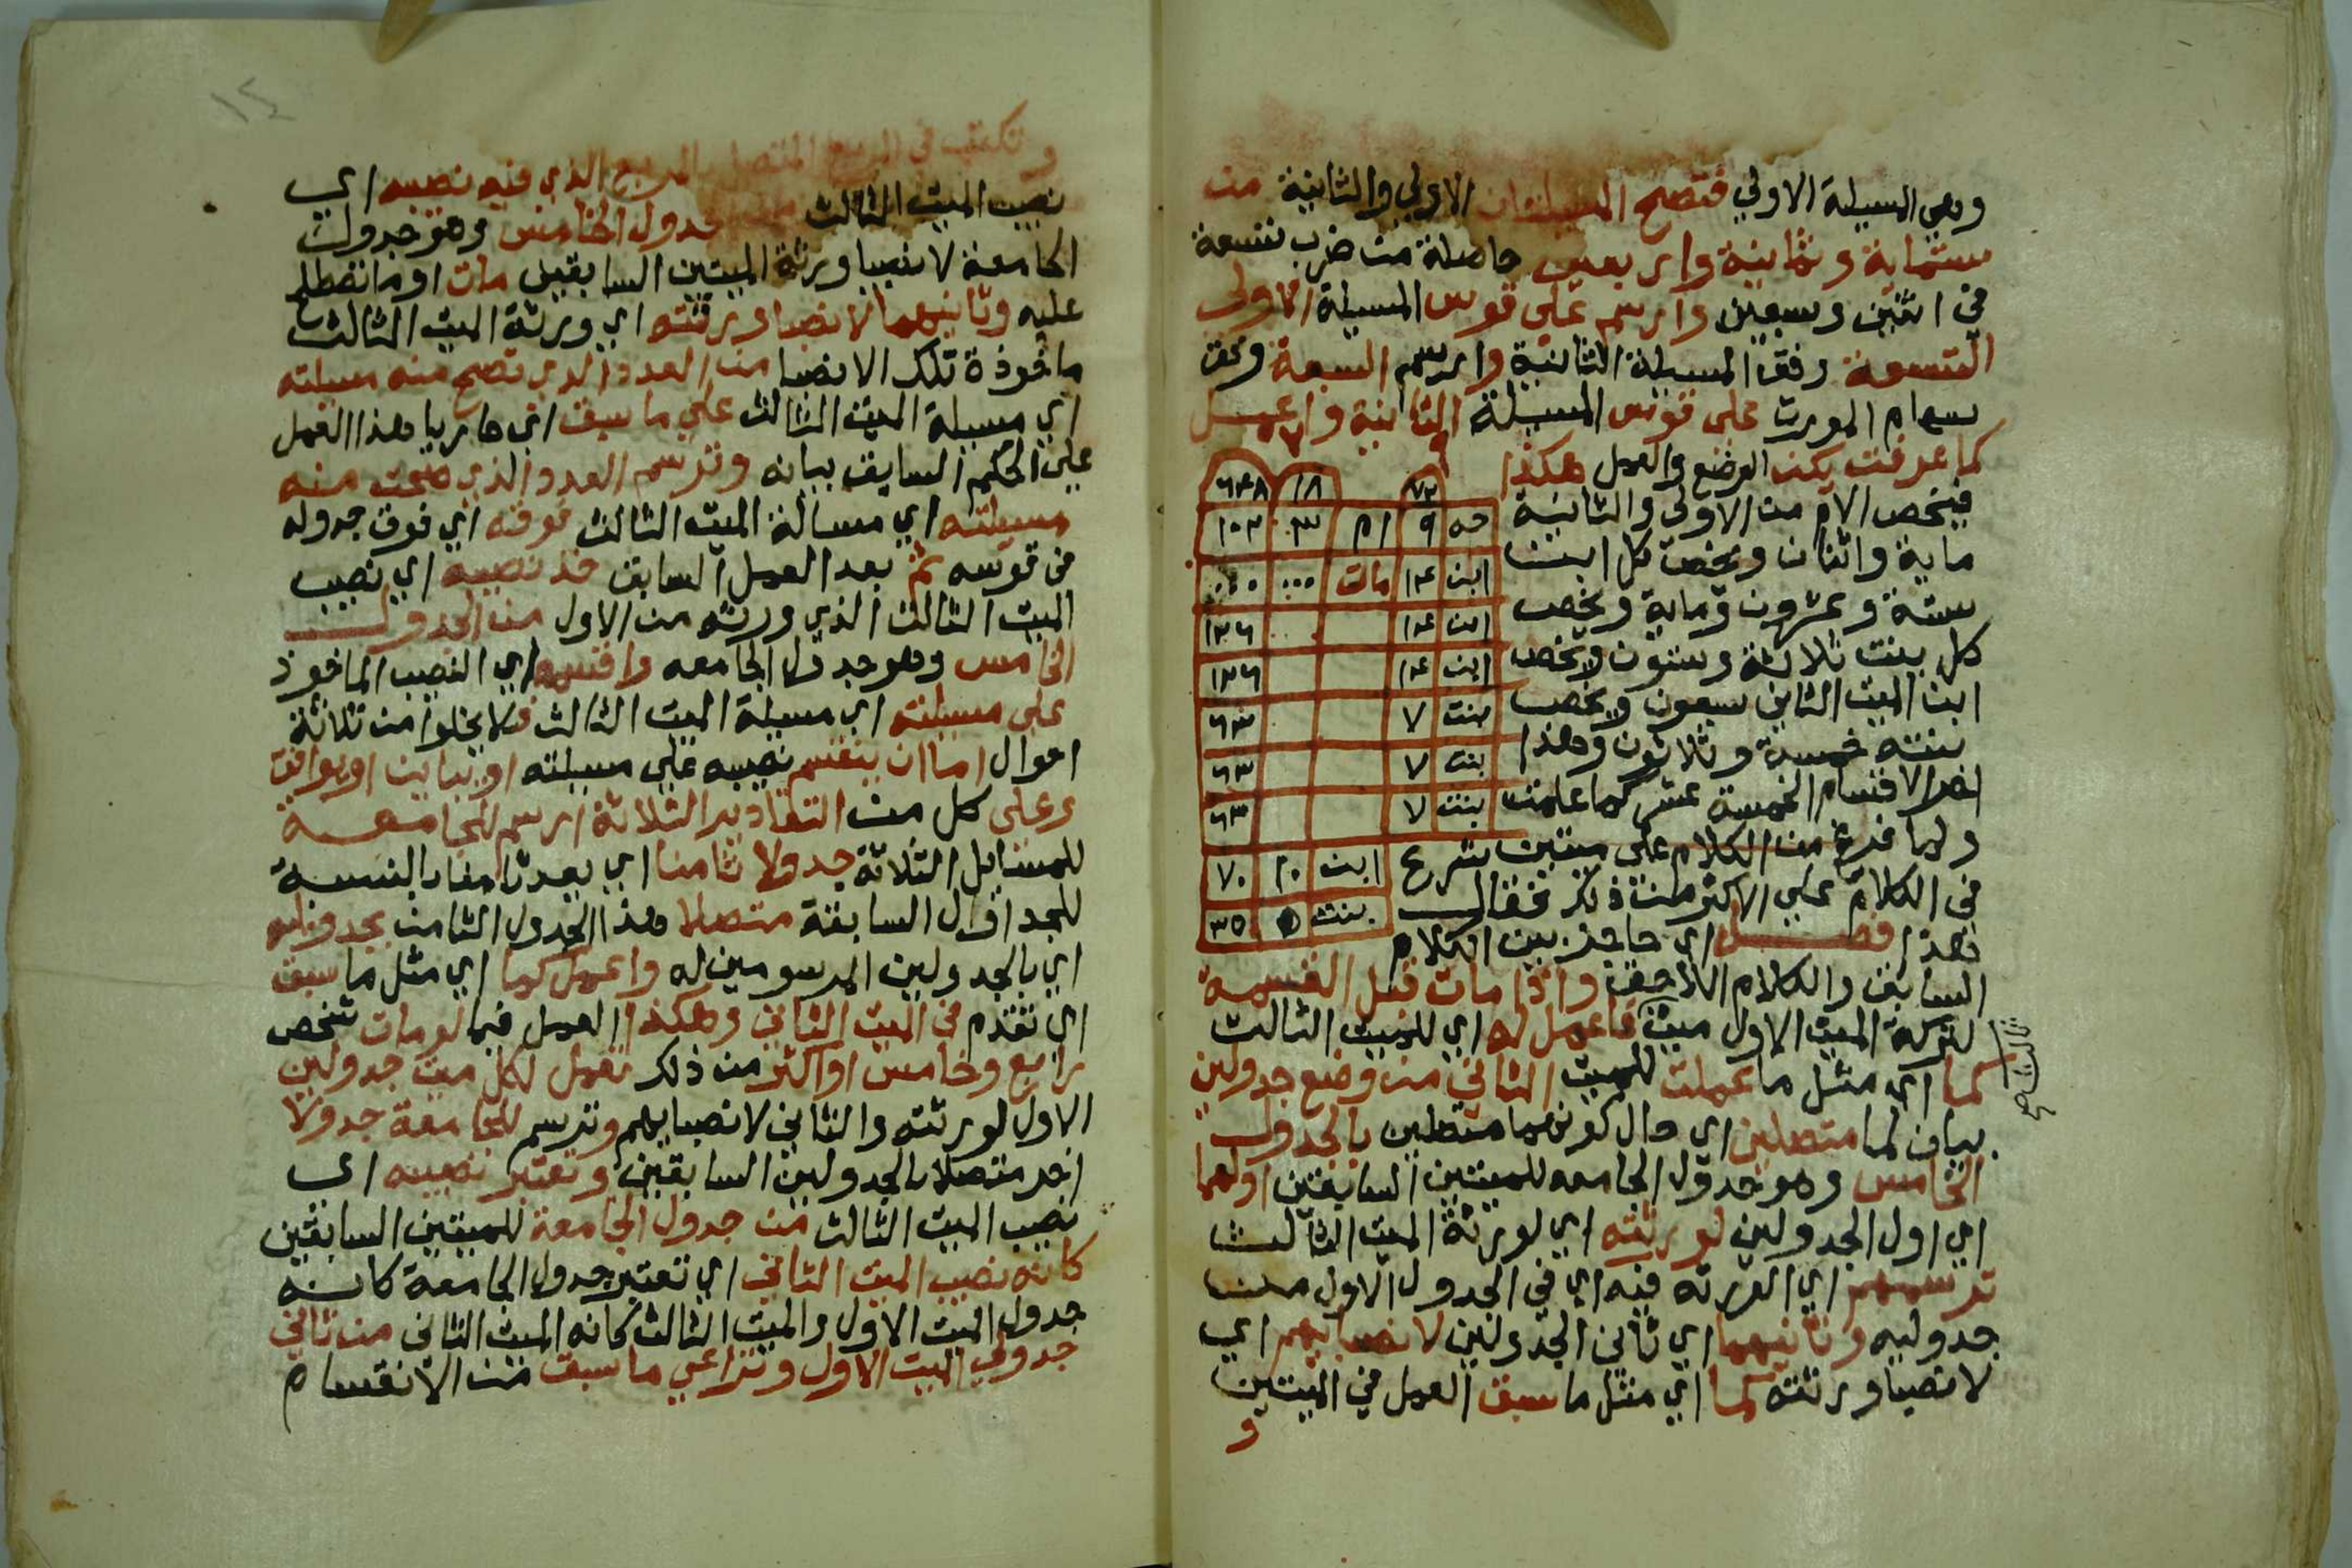 وهي المسيلة الاولي فتصح المسيلتان الاولي والثانية من
ستماية وثمانية واربعين حاصلة من ضرب تسعة
في اثنين وسبعين وارسم علي قوس المسيلة الاولي
التسعة وفق المسيلة الثانية وارسم السبعة وفق
سهام المورث علي قوس المسيلة الثانية واعمل
كما عرفت يكن الوضع والعمل هكذا
فيخص الام من الاولي والثانية
ماية واثنان ويخص كل ابن
ستة وعشرون وماية ويخص
كل بنت ثلاثة وستون ويخص
ابن الميت الثاني سبعون ويخص
بنته خمسة وثلاثون وهذا
اخر الاقسام الخمسة عشر كما علمت
ولما فرغ من الكلام علي ميتين شرع
في الكلام علي الاكثر من ذلك فقال
هذا فصل اي حاجز بين الكلام
٩ ٧
٧٢ ١٨ ٦٤٨
جه ٩ ام ٣ ١٠٢
ابن ١٤ مات ... ...
ابن ١٤ .. ١٢٦
ابن ١٤ ١٢٦
بنت ٧ ٦٣
بنت ٧ ٦٣
بنت ٧ ٦٣
ابن ١٠ ٧٠
بنت ٥ ٣٥
السابق والكلام اللاحق واذا مات قبل القسمة
لتركة الميت الاول ميت فاعمل له اي للميت الثالث
ثالث صح
كما اي مثل ما عملت للميت الثاني من وضع جدولين
بيان لما متصلين اي حال كونهما متصلين بالجدول
الخامس وهو جدول الجامعه للميتين السابقين اولهما
اي اول الجدولين لورثته اي لورثة الميت الثالث
ترسمهم اي الورثه فيه اي في الجدول الاول من
جدوليه وثانيهما اي ثاني الجدولين لانصبايهم اي
لانصبا ورثته كما اي مثل ما سبق العمل في الميتين
و
١٢
وتكتب في المربع المتصل بالمربع الذي فيه نصيبه اي
نصيب الميت الثالث من جدول الخامس وهو جدول
الجامعة لانصبا ورثة الميتين السابقين مات او ما تصطلح
عليه وثانيهما لانصبا ورثته اي ورثة الميت الثالث
ماخوذة تلك الانصبا من العدد الذي تصح منه مسيلته
اي مسيلة الميت الثالث علي ما سبق اي جاريا هذا العمل
علي الحكم السابق بيانه وترسم العدد الذي صحت منه
مسيلته اي مسالة الميت الثالث فوقه اي فوق جدوله
في قوسه ثم بعد العمل السابق خذ نصيبه اي نصيب
الميت الثالث الذي ورثه من الاول من الجدول
الخامس وهو جدول الجامعه واقسمه اي النصيب الماخوذ
علي مسيلته اي مسيلة الميت الثالث فلا يخلوا من ثلاثة
احوال اما ان ينقسم نصيبه علي مسيلته او يباين او يوافق
وعلي كل من التقادير الثلاثة ارسم للجامعة
للمسايل الثلاثة جدولا ثامنا اي يعد ثامنا بالنسبة
للجداول السابقة متصلا هذا الجدول الثامن بجدوليه
اي بالجدولين المرسومين له واعمل كما اي مثل ما سبق
اي تقدم في الميت الثاني وهكذا العمل فيما لو مات شخص
رابع وخامس او اكثر من ذلك تعمل لكل ميت جدولين
الاول لورثته والثاني لانصبايهم وترسم للجامعة جدولا
اخر متصلا بالجدولين السابقين وتعتبر نصيبه اي
نصيب الميت الثالث من جدول الجامعة للميتين السابقين
كانه نصيب الميت الثاني اي تعتبر جدول الجامعة كانه
جدول الميت الاول والميت الثالث كانه الميت الثاني من ثاني
جدولي الميت الاول وتراعي ما سبق من الانقسام